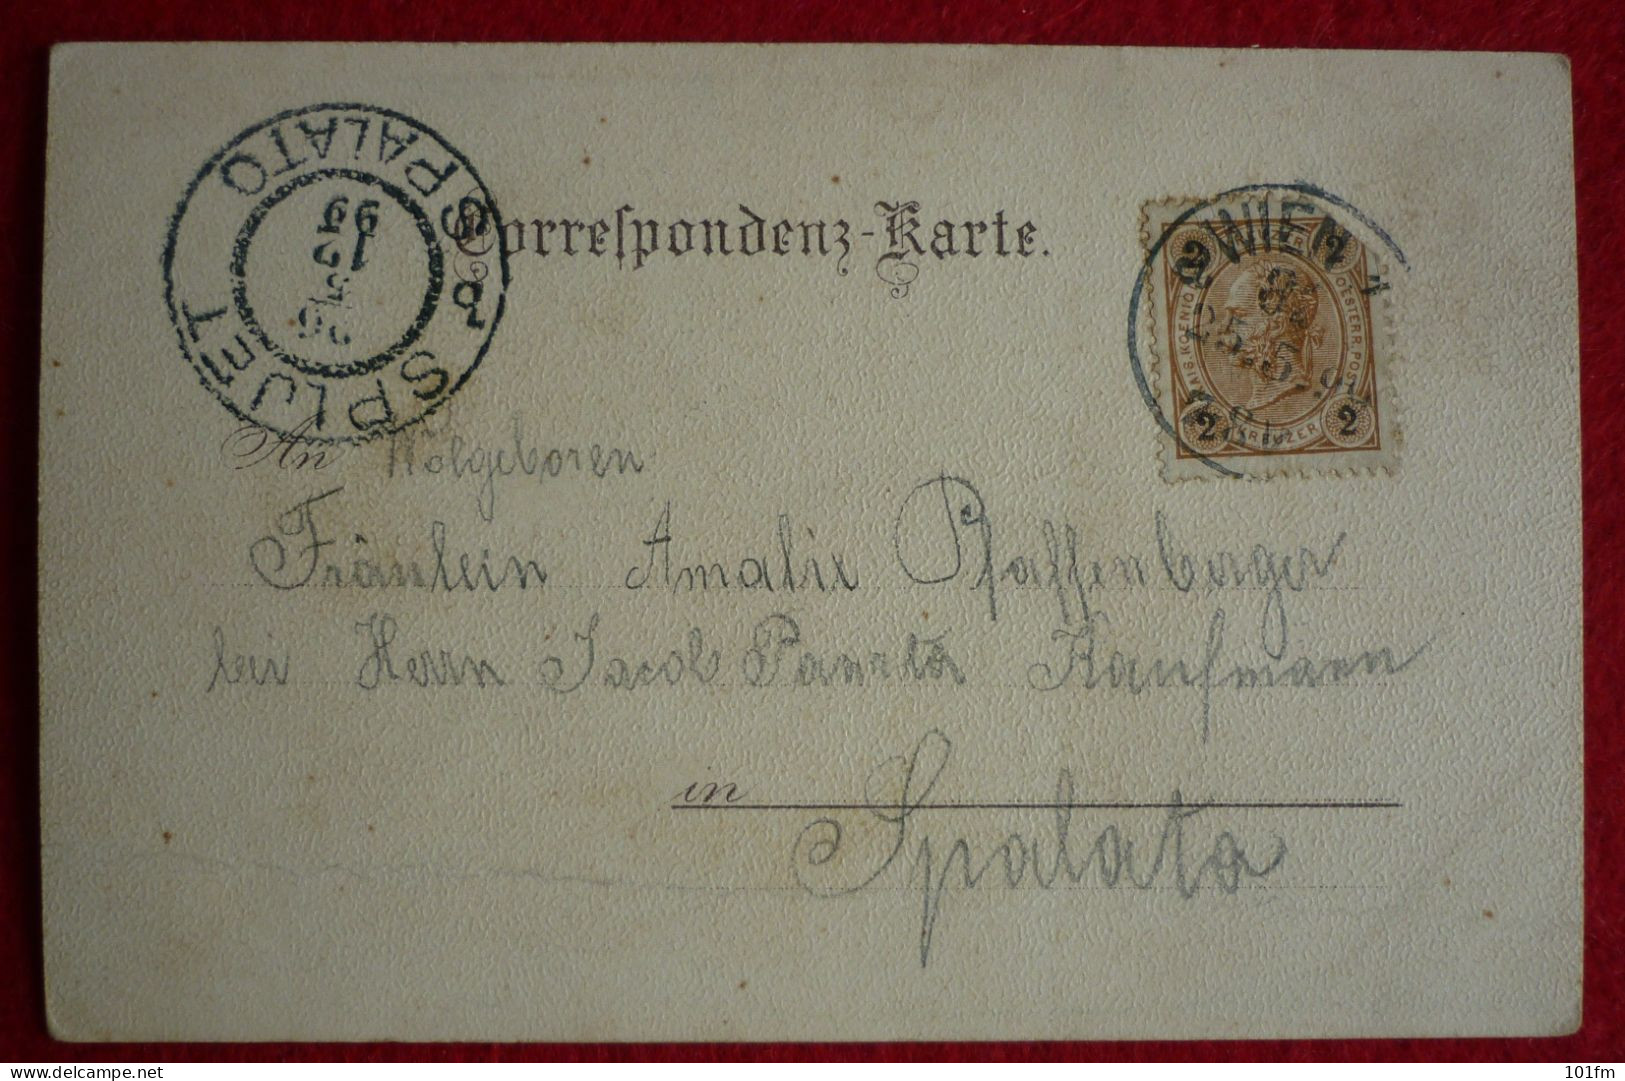 SPLJET SPALATO
99
Correspondenz-Karte.
WIEN 1
2 2
KAIS. KOENIGL. OESTERR. POST
2 KREUZER 2
An Wolgeboren
Fräulein Amalie Pfaffenberger
bei Herrn Jacob Kaufmann
in Spalato
delcampe.net
101fm